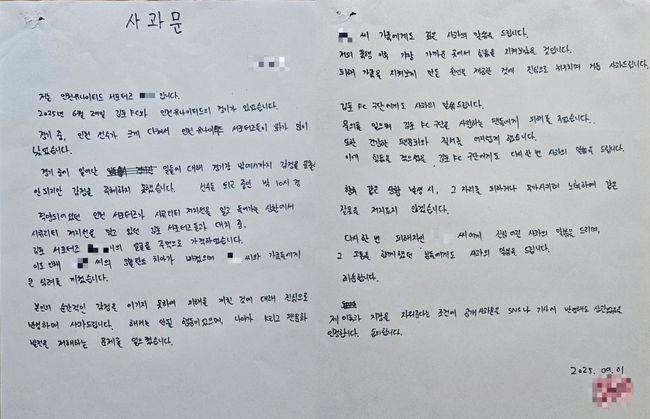 사과문
저는 인천유나이티드 서포터즈 입니다.
2025년 6월 29일 김포FC와 인천유나이티드의 경기가 있었습니다.
경기 중, 인천 선수가 크게 다쳐서 인천유나이티드 서포터즈들이 화가 많이
났었습니다.
경기 중에 일어난 일들에 대해 경기장 밖에서까지 감정을 품으면
안 되지만 감정을 억제하지 못했습니다. 선수들 퇴근 중인 밤 10시 경
인천 서포터즈가 시큐리티 저지선을 밀고 들어가는 상황에서
시큐리티 저지선을 밀고 있던 김포 서포터즈들과 대치 중,
김포 서포터즈 씨의 얼굴을 주먹으로 가격하였습니다.
이로 인해 씨의 치아가 빠졌으며 씨와 가족들에게
큰 심려를 끼쳤습니다.
본인의 순간적인 감정을 이기지 못하여 피해를 끼친 것에 대해 진심으로
반성하며 사과드립니다. 해서는 안될 행동이었으며, 나아가 K리그 팬문화
발전을 저해하는 문제를 일으켰습니다.
씨 가족에게도 깊은 사과의 말씀을 드립니다.
저의 폭행 이후 가장 가까운 곳에서 힘듦을 지켜보았을 것입니다.
피해 가족을 지켜보게 만든 원인을 제공한 것에 진심으로 뉘우치며 거듭 사과드립니다.
김포 FC 구단에게도 사과의 말씀을 드립니다.
물의를 일으켜 김포 FC 구단을 사랑하는 팬들에게 피해를 주었습니다.
또한 건강한 팬문화와 질서를 어지럽게 했습니다.
이에 힘듦을 겪으셨을 김포 FC 구단에게도 다시 한 번 사과의 말씀을 드립니다.
향후 같은 상황 발생 시, 그 자리를 피하거나 유사시에도 노력하여 같은
잘못을 저지르지 않겠습니다.
다시 한 번 피해자인 씨에게 진심 어린 사과의 말씀을 드리며,
그 고통을 함께했던 분들에게도 사과의 말씀을 드립니다.
죄송합니다.
제 이름과 지장을 지워준다는 조건에 공개사과문을 SNS나 기사에 반영해도 상관없음을
인정합니다. 동의합니다.
2025. 09. 01